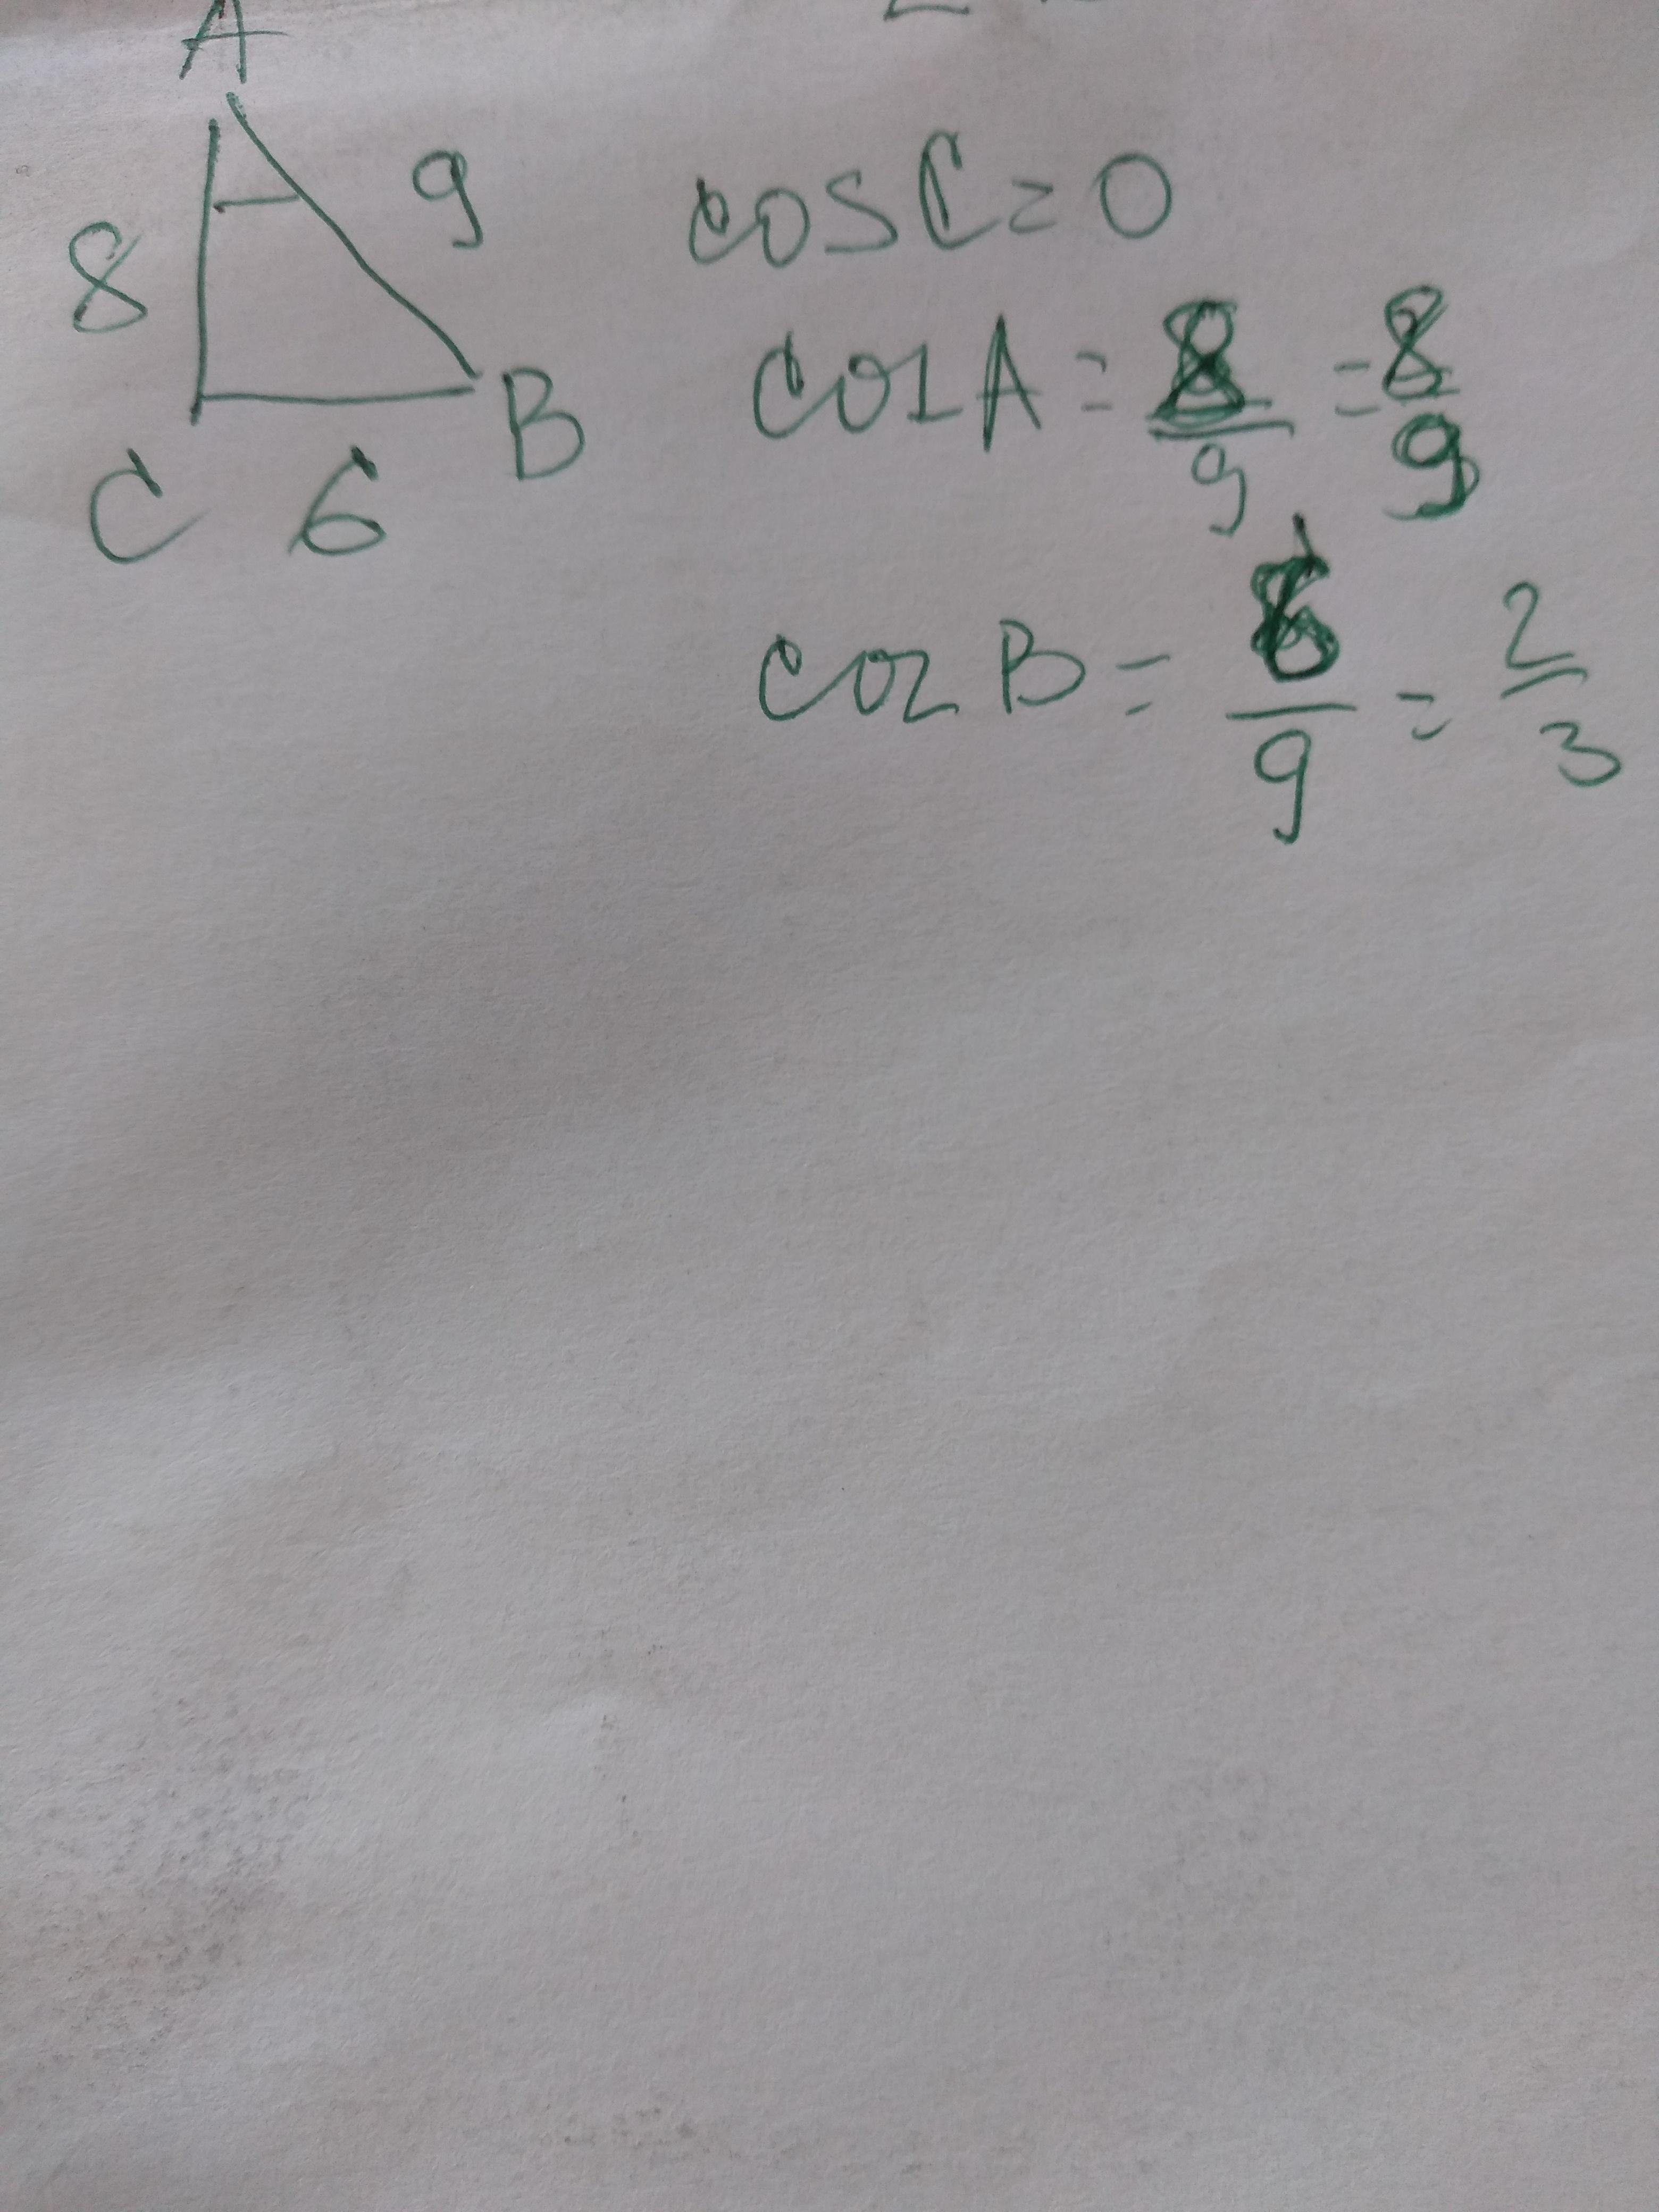 A
9
8
C 6 B
cos C = 0
cos A = 8/9 = 8/9
cos B = 6/9 = 2/3